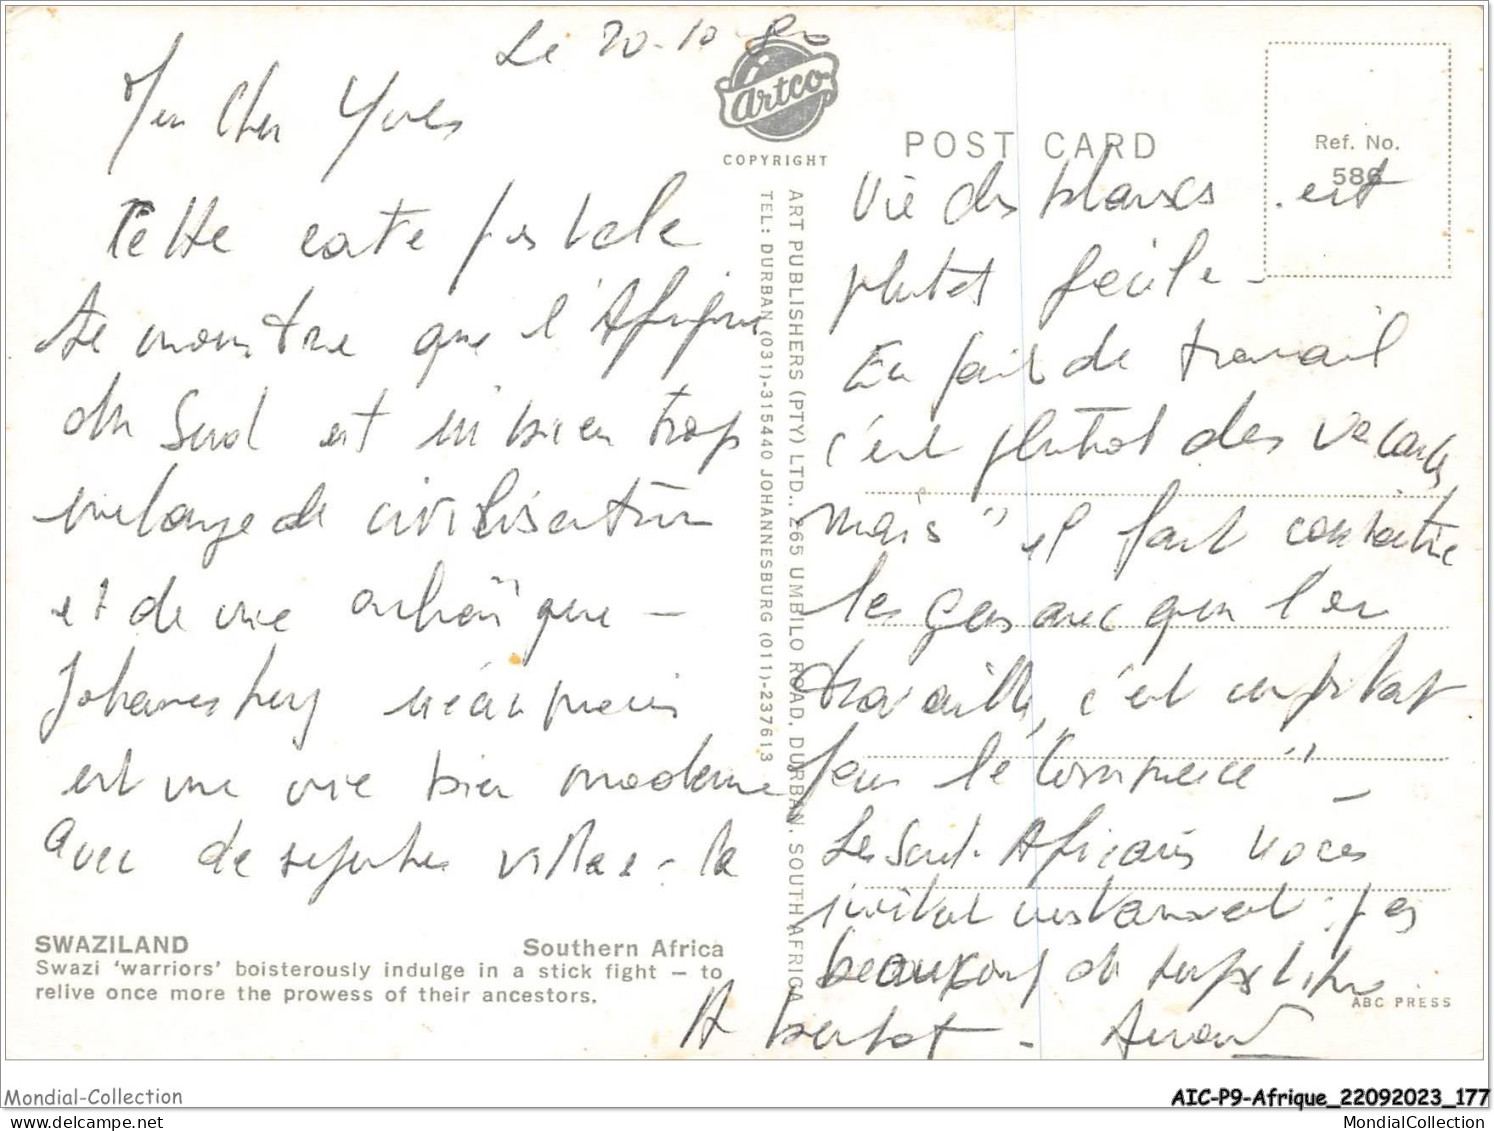 Le 20-10-80
Mon Cher Yves
Cette carte postale
te montre que l'Afrique
du Sud est un bien trop
mélange de civilisation
et de vie archaïque -
Johannesburg néanmoins
est une ville bien moderne
avec de superbes villas - la
vie des blancs est
plutôt facile -
En fait de travail
c'est plutôt des vacances
mais "il faut connaître
les gens avec qui l'on
travaille, c'est important
pour le commerce" -
Les Sud-Africains nous
invitent constamment : pas
beaucoup de temps libre
A bientôt -
Artco
COPYRIGHT
POST CARD
Ref. No.
586
ART PUBLISHERS (PTY) LTD., 265 UMBILO ROAD, DURBAN, SOUTH AFRICA
TEL: DURBAN (031)-315440 JOHANNESBURG (011)-237613
SWAZILAND Southern Africa
Swazi 'warriors' boisterously indulge in a stick fight — to
relive once more the prowess of their ancestors.
ABC PRESS
Mondial-Collection
AIC-P9-Afrique_22092023_177
www.mondialcollection.net
MondialCollection